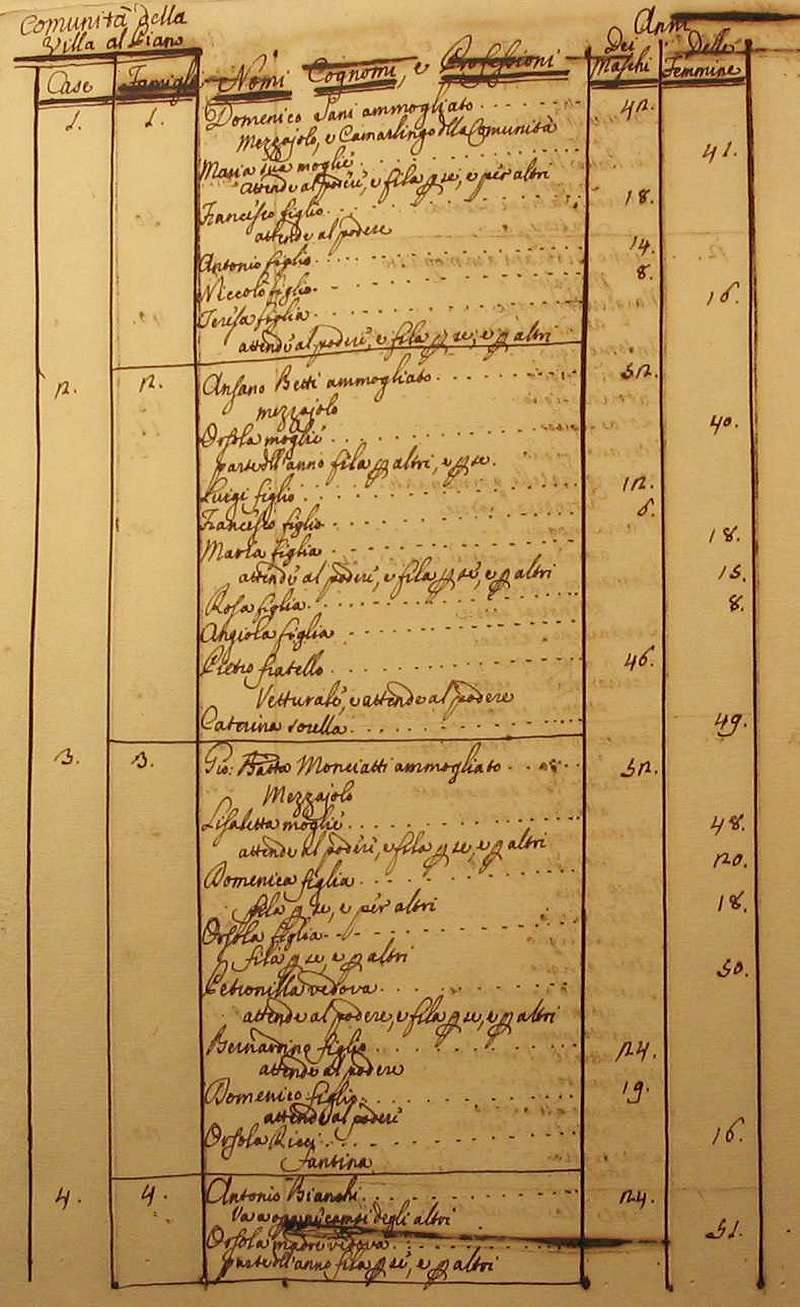 Comunità della
Villa al Piano
Anni
Case Famigl Nomi Cognomi, e Professioni Dei Maschi Delle Femmine
1. 1. Domenico Sani ammogliato 42.
Mezzajolo, e Camarlingo dlla Comunità
Maria sua moglie 41.
attende al podere, e fila p se, e per altri
Francesco figlio 18.
attende al podere
Antonio figlio 14.
Niccolò figlio 8.
Teresa figlia 16.
attende al podere, e fila p se, e p altri
2. 2. Ansano Betti ammogliato 52.
mezzajolo
Orsola moglie 40.
parte dll'anno fila p altri, e p se.
Luigi figlio 12.
Francesco figlio 6.
Maria figlia 18.
attende al podere, e fila p se, e p altri
Rosa figlia 15.
Angiola figlia 8.
Pietro fratello 46.
Vetturale, e attende al podere
Caterina sorella 49.
3. 3. Gio: Batta Monciatti ammogliato 52.
Mezzajolo
Lisabetta moglie 48.
attende al podere, e fila p se, e p altri
Domenica figlia 20.
fila p se, e per altri
Orsola figlia 18.
fila p se, e p altri
Petronilla vedova 50.
attende al podere, e fila p se, e p altri
Bernardino figlio 24.
attende al podere
Domenico figlio 19.
attende al podere
Orsola Ricci 16.
fantina
4. 4. Antonio Bianchi 24.
Va a campi degli altri
Orsola madre vedova 51.
parte dll'anno fila p se, e p altri